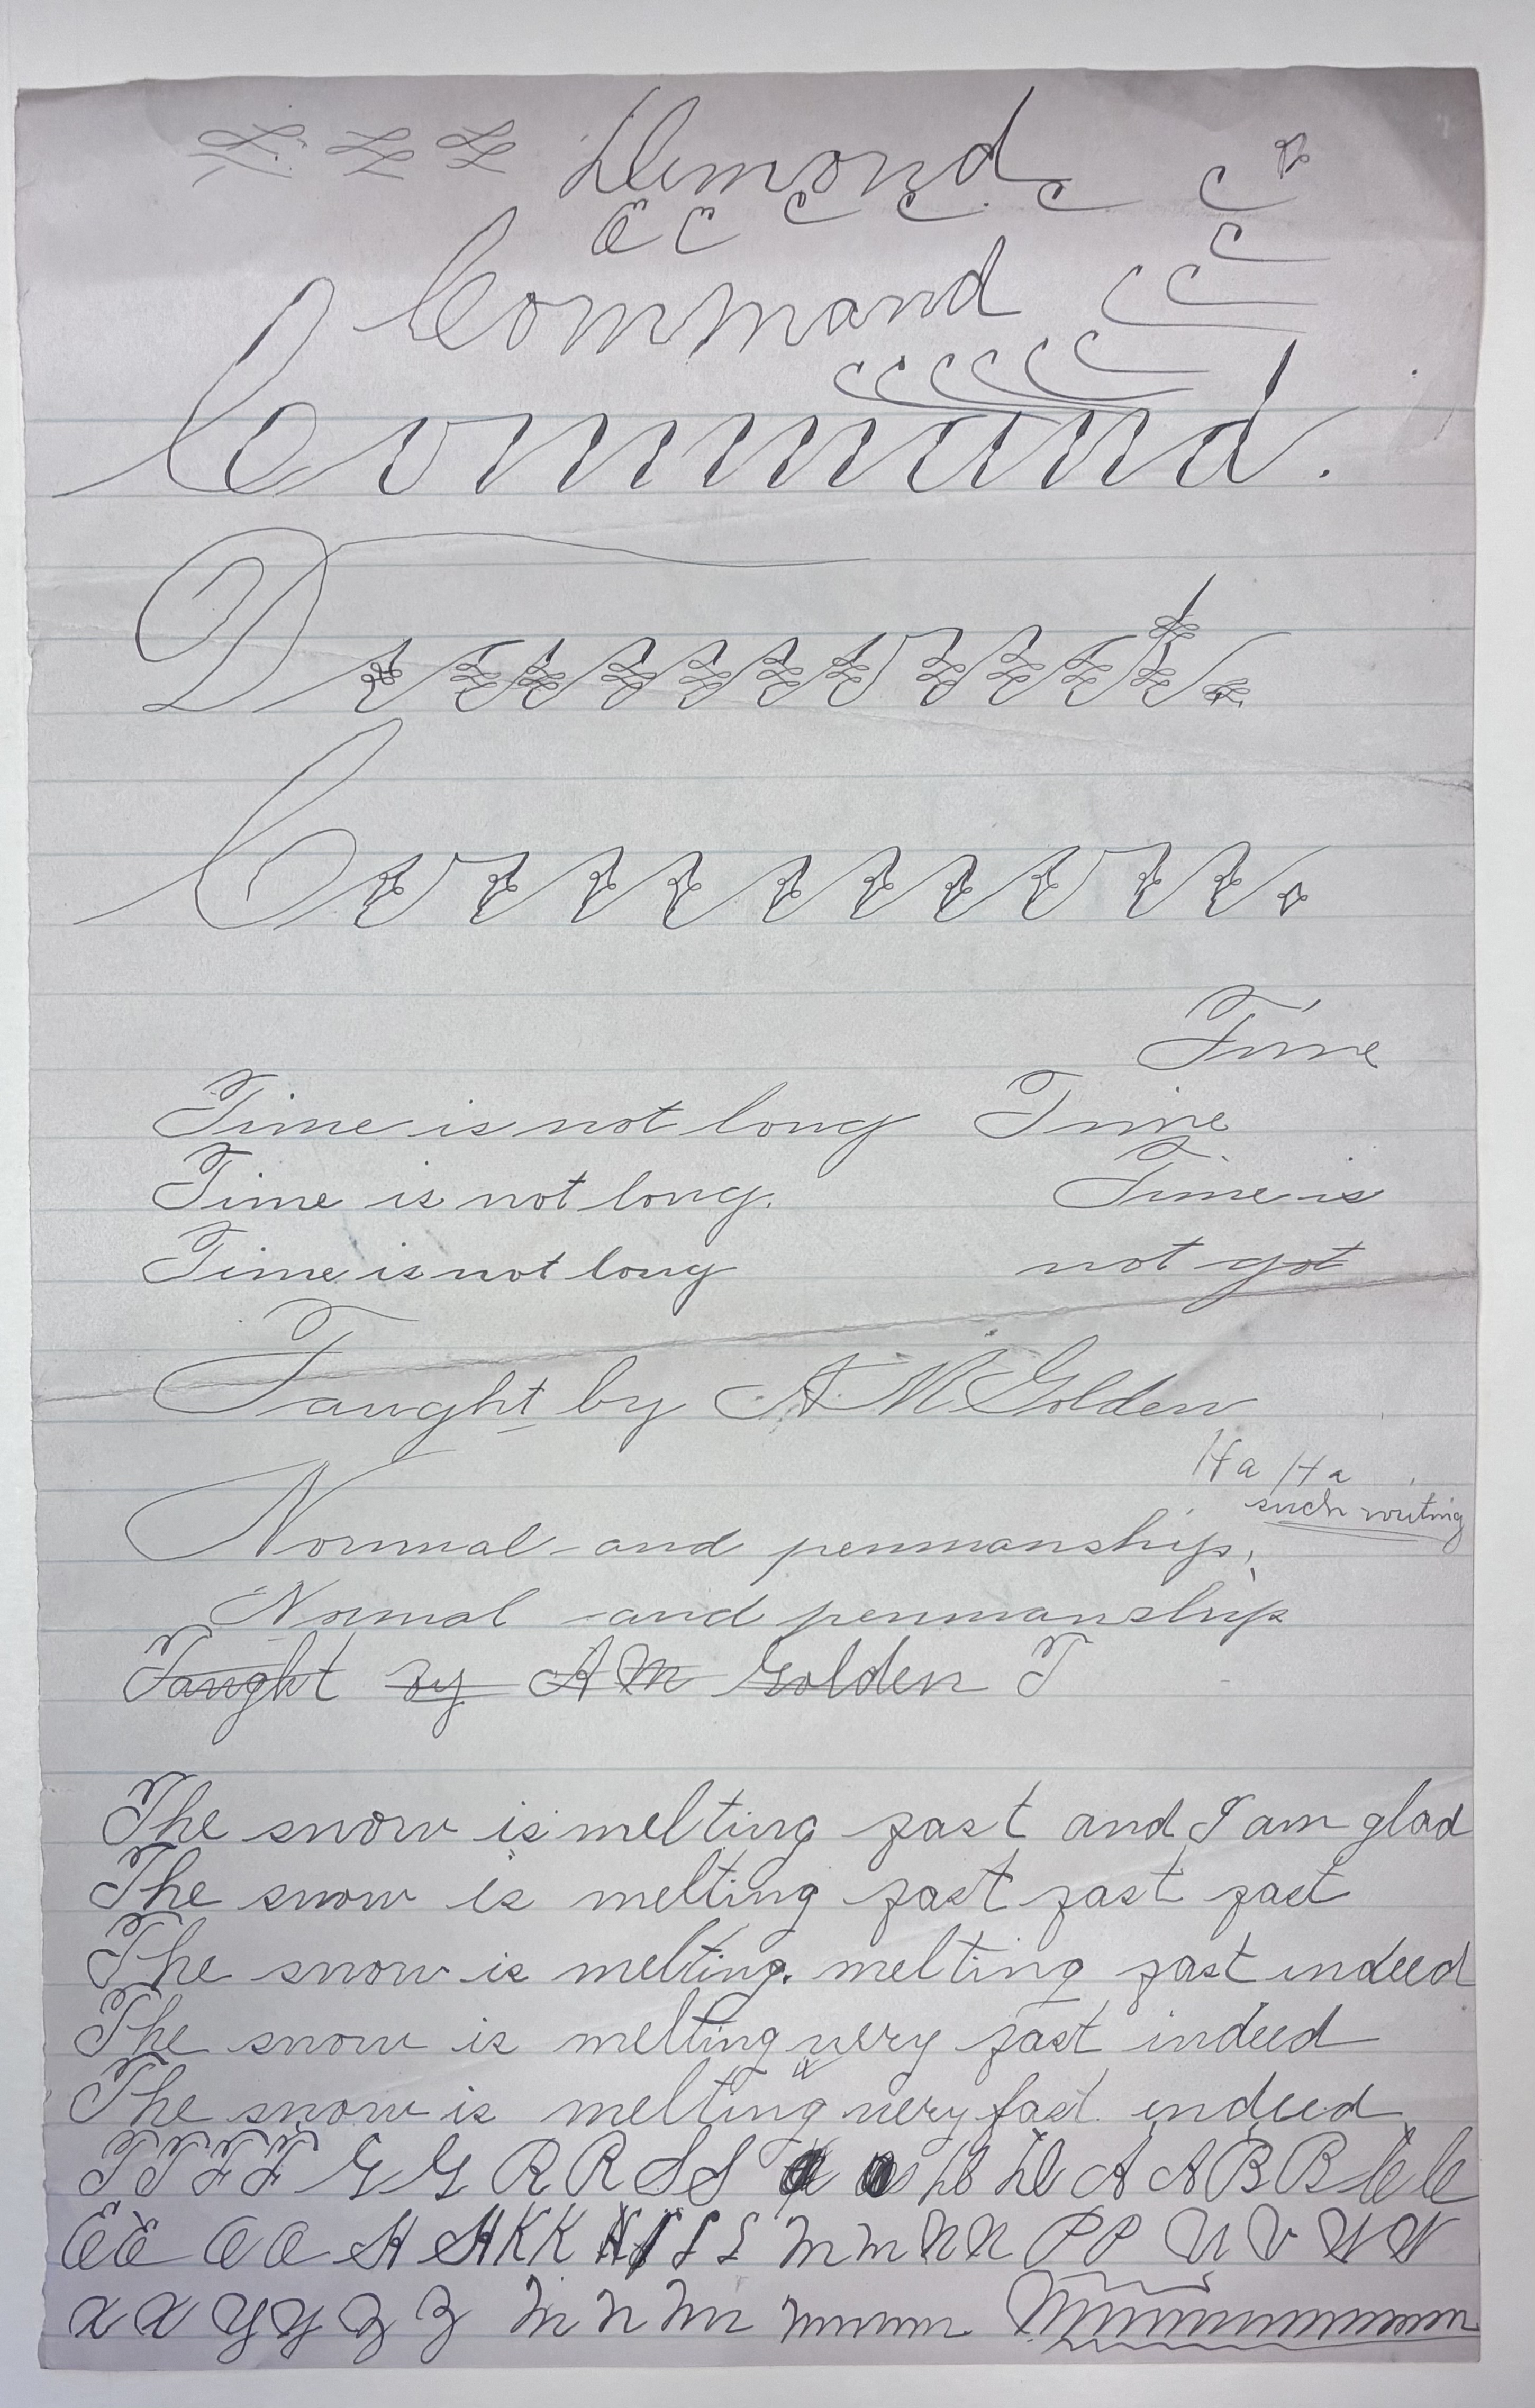 Demand
C C C C C C C
C
Command
C C
C C C C C C
Command.
Time
Time is not long Time
Time is not long. Time is
Time is not long not got
Taught by A. M Golden
Ha Ha
such writing
Normal and penmanship,
Normal and penmanship
Taught by A M Golden T
The snow is melting fast and I am glad
The snow is melting fast fast fast
The snow is melting. melting fast indeed
The snow is melting very fast indeed
The snow is melting very fast. indeed
T T F F G G R R S S D D A A B B C C
E E O O H H K K I S S M M N N P P U V W W
X X Y Y Z Z M N M mmmm